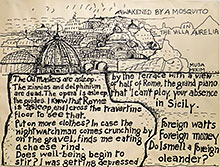 AWAKENED BY A MOSQUITO
IN THE VILLA AURELIA
The Old Masters are asleep.
The zinnias and delphinium
are dead. The opera is asleep
the guides. I know that Rome
is and I cross the travertine
floor to see that.
Put on more clothes? In case the
nightwatchman comes crunching by
off the gravel, finds me eating
a cheese rind.
Does well-being begin to
stir? I was getting depressed
by the Terrace with a view
of half of Rome, the grand piano
that I can't play, your absence
in Sicily.
Foreign watts
Foreign money
Do I smell a foreign
oleander?